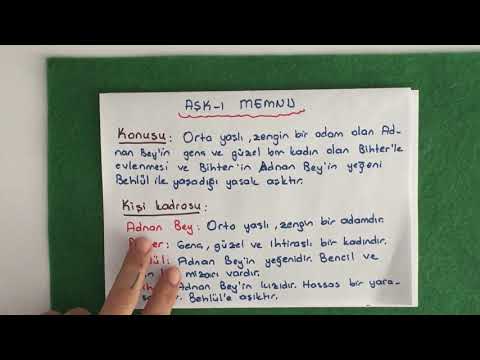 AŞK-I MEMNU
Konusu: Orta yaşlı, zengin bir adam olan Ad-
nan Bey'in genç ve güzel bir kadın olan Bihter'le
evlenmesi ve Bihter'in Adnan Bey'in yeğeni
Behlül ile yaşadığı yasak aşktır.
Kişi kadrosu:
Adnan Bey: Orta yaşlı, zengin bir adamdır.
Genç, güzel ve ihtiraslı bir kadındır.
Adnan Bey'in yeğenidir. Bencil ve
mizacı vardır.
Adnan Bey'in kızıdır. Hassas bir yara-
Behlül'e aşıktır.